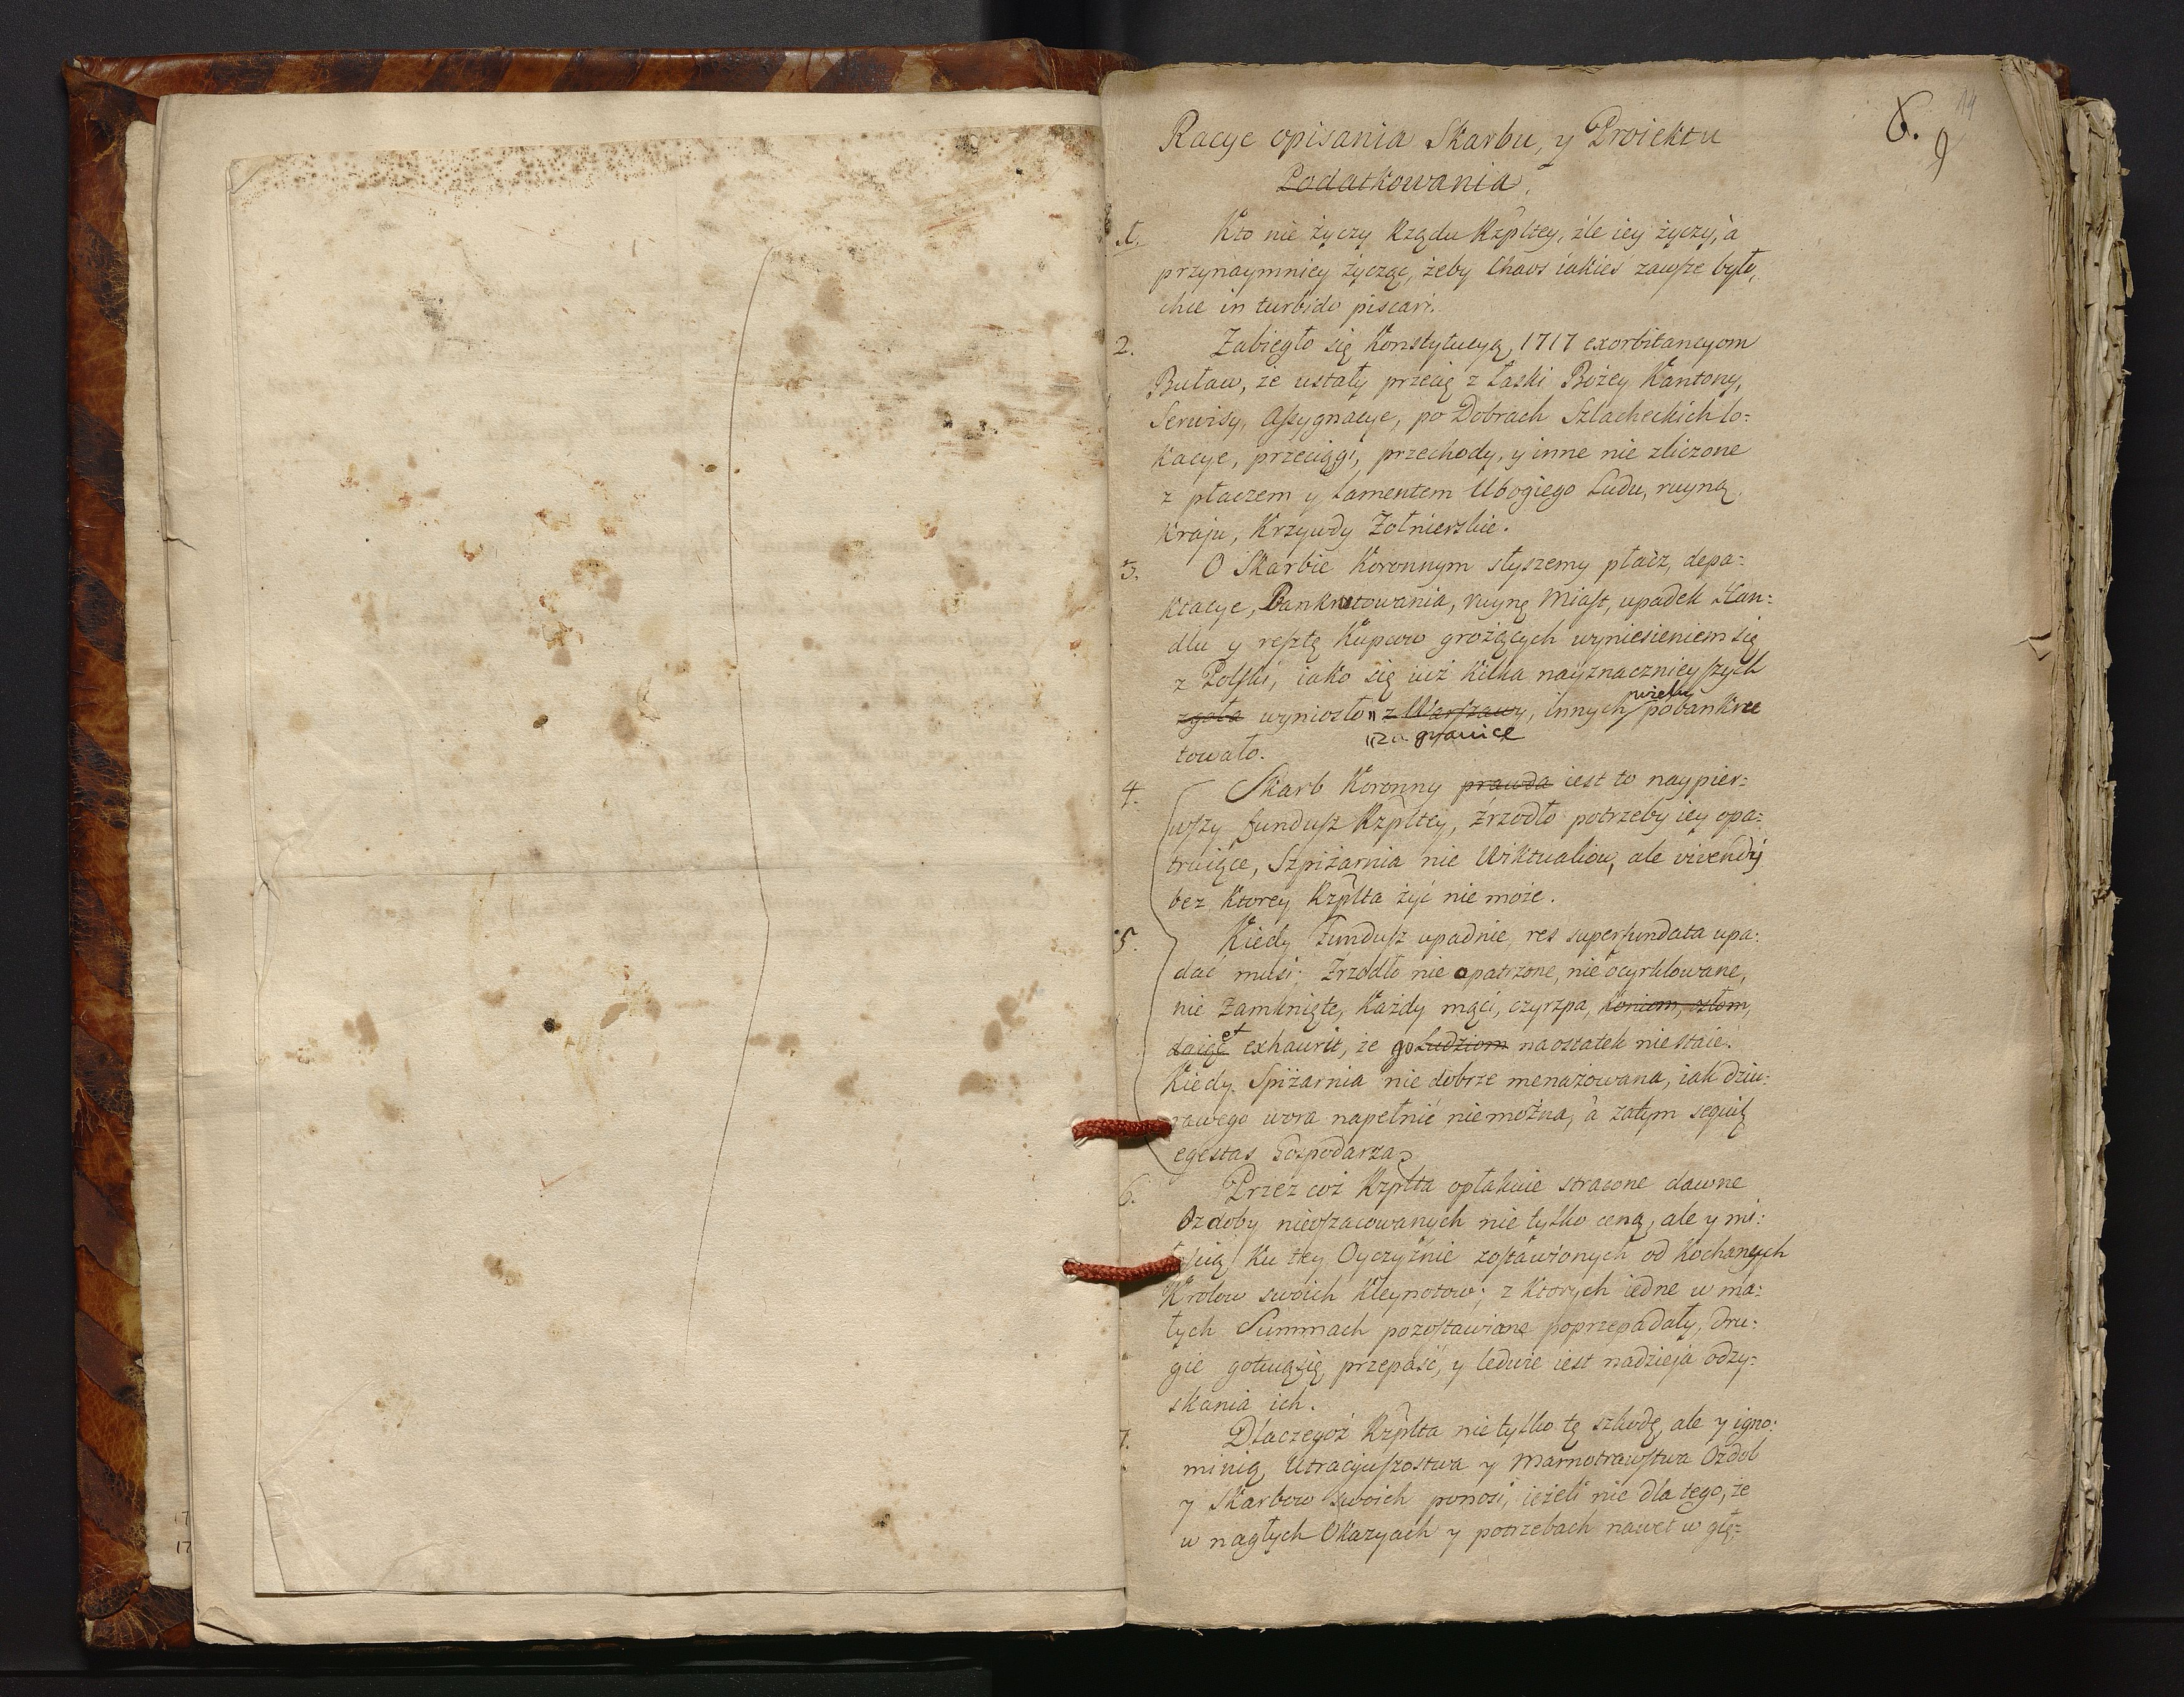 6. 14
9
Racye opisania Skarbu, y Proiektu
Podatkowania.
1. Kto nie życzy Rządu Rzpltey, źle iey życzy, a
przynaymniey życząc, żeby Chaos iakieś zawsze było,
chce in turbido piscari.
2. Zabiegło się Konstytucyą 1717 exorbitancyom
Buław, że ustały przecię z Łaski Bożey Kantony,
Serwisy, Assygnacye, po Dobrach Szlacheckich lo-
kacye, przeciągi, przechody, y inne nie zliczone
z płaczem y lamentem Ubogiego Ludu, ruyną
Kraju, Krzywdy Żołnierskie.
3. O Skarbie Koronnym słyszemy płacz, depa-
ktacye, Bankrutowania, ruynę Miast, upadek Han-
dlu y resztę Kupcow grożących wyniesieniem się
z Polski, iako się iuż kilka nayznacznieyszych
zgoła wyniosło z Warszawy, innych wielu pobankru
za granice
towało.
4. Skarb Koronny prawda iest to naypier-
wszy fundusz Rzpltey, źrzodło potrzeby iey opa-
truiące, Szpiżarnia nie Wiktualiow, ale vivendi
bez ktorey Rzplta żyć nie może.
5. Kiedy Fundusz upadnie, res superfundata upa-
dać musi; Źrzodło nie opatrzone, nie ocyrklowane,
nie zamknięte, każdy mąci, czyrzpa, koniom, osłom,
daiąc et exhaurit, że go Ludziom na ostatek nie staie.
Kiedy Spiżarnia nie dobrze menażowana, iak dziu-
rawego wora napełnić nie można, a zatym sequit
egestas Gospodarza.
6. Przez coż Rzplta opłakuie stracone dawne
Ozdoby nieoszacowanych nie tylko ceną, ale y mi-
łścią ku tey Oyczyźnie zostawionych od Kochanych
Krolow swoich Kleynotow; z ktorych iedne w ma-
łych Summach pozostawiane poprzepadały, dru-
gie gotuią się przepaść, y ledwie iest nadzieja odzy-
skania ich.
7. Dlaczegoż Rzplta nie tylko tę szkodę, ale y igno-
minią Utracyuszostwa y Marnotrawstwa Ozdob
y Skarbow swoich ponosi, ieżeli nie dla tego, że
w nagłych Okazyach y potrzebach nawet w głę-